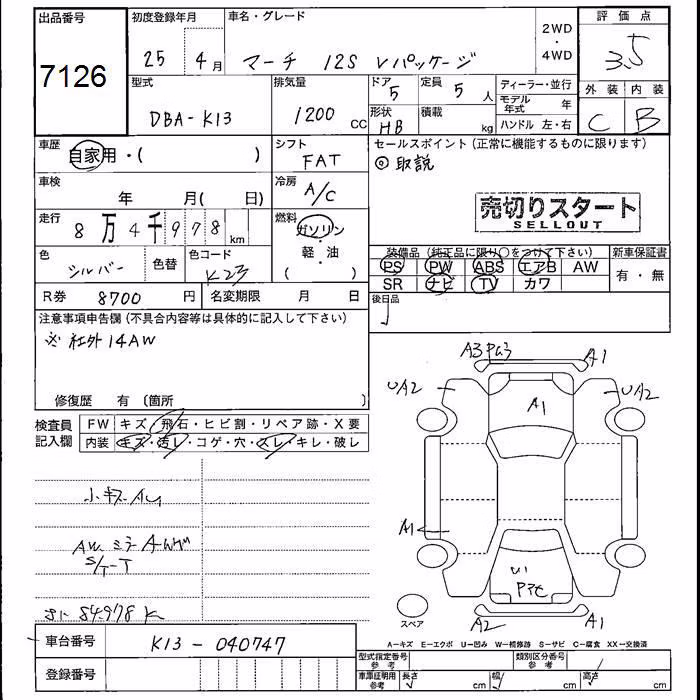 出品番号 初度登録年月 車名・グレード 評価点
7126 25年 4月 マーチ 12S Vパッケージ 2WD・4WD 3.5
型式 排気量 ドア 5 定員 5人 ディーラー・並行 外装 内装
DBA-K13 1200CC 形状 HB 積載 kg モデル年式 年 C B
ハンドル 左・右
車歴 自家用・( ) シフト FAT セールスポイント (正常に機能するものに限ります)
◎取説
車検 年 月( 日) 冷房 A/C
売切りスタート
SELLOUT
走行 8万4千978km 燃料 ガソリン・軽・油( )
色 シルバー 色替 色コード K23
装備品 (純正品に限り○をつけて下さい) 新車保証書
PS PW ABS エアB AW 有・無
SR ナビ TV カワ
R券 8700円 名変期限 月 日 後日品
注意事項申告欄 (不具合内容等は具体的に記入して下さい)
※ 社外14AW
修復歴 有 〔箇所 〕
検査員記入欄 FW キズ・飛石・ヒビ割・リペア跡・X要
内装 キズ・汚レ・コゲ・穴・スレ・キレ・破レ
A3 A1
UA2 A1 UA2
小キズ
A1
84.978K
A2 A1
スペア
車台番号 K13-040747
A-キズ E-エクボ U-凹み W-補修跡 S-サビ C-腐食 XX-交換済
登録番号
型式指定番号 参考 類別区分番号 参考
車庫証明用 参考 長さ cm 幅 cm 高さ cm